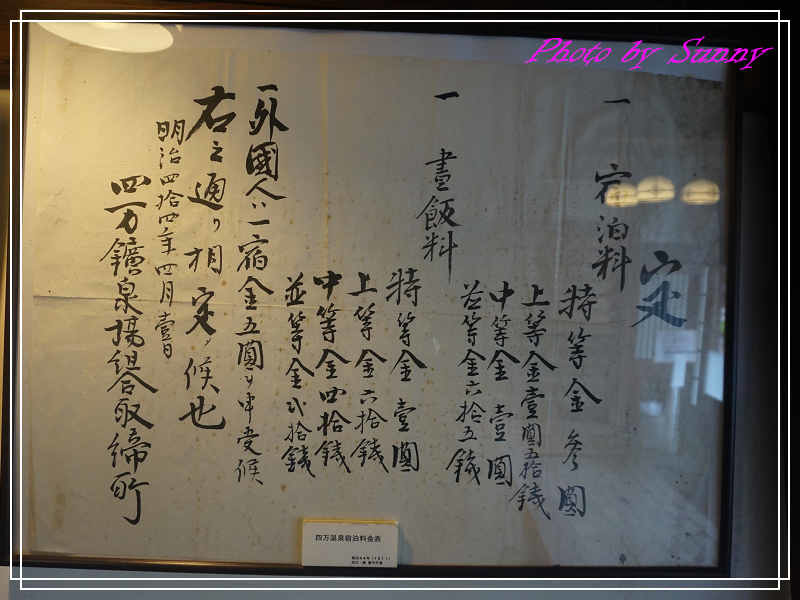 定
一 宿泊料
特等金 参圓
上等金壹圓五拾錢
中等金 壹圓
並等金六拾五錢
一 晝飯料
特等金 壹圓
上等金六拾錢
中等金四拾錢
並等金弐拾錢
一外國人ハ一宿金五圓ヲ申受候
右之通リ相定メ候也
明治四拾四年四月壹日
四万鑛泉場組合取締所
四万温泉宿泊料金表
Photo by Sunny